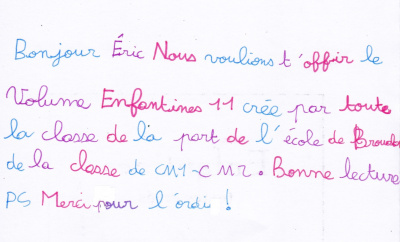 Bonjour Éric Nous voulions t'offir le
Volume Enfantines 11 crée par toute
la classe de la part de l'école de
de la classe de CM1-CM2. Bonne lecture
PS Merci pour l'ordi !